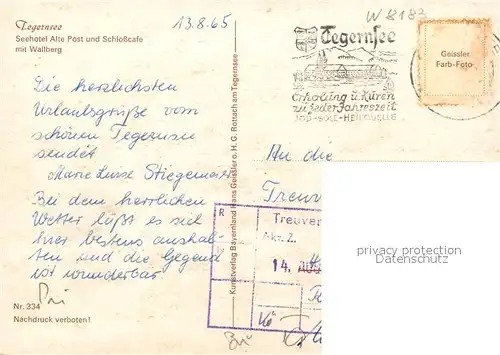 Tegernsee
Seehotel Alte Post und Schloßcafe
mit Wallberg
13.8.65
W 8183
Tegernsee
Erholung u. Kuren
zu jeder Jahreszeit
JOD-SOLE-HEILQUELLE
Geissler
Farb-Foto
Die herzlichsten
Urlaubsgrüße vom
schönen Tegernsee
sendet
Marie Luise Stiegemann
Bei dem herrlichen
Wetter läßt es sich
hier bestens aushal-
ten und die Gegend
ist wunderbar
Nr. 334
Nachdruck verboten!
Kunstverlag Bayernland Hans Geissler o. H. G. Rottach am Tegernsee
An die
Treuv
R
Treuver
Akt. Z.
14. AUG
privacy protection